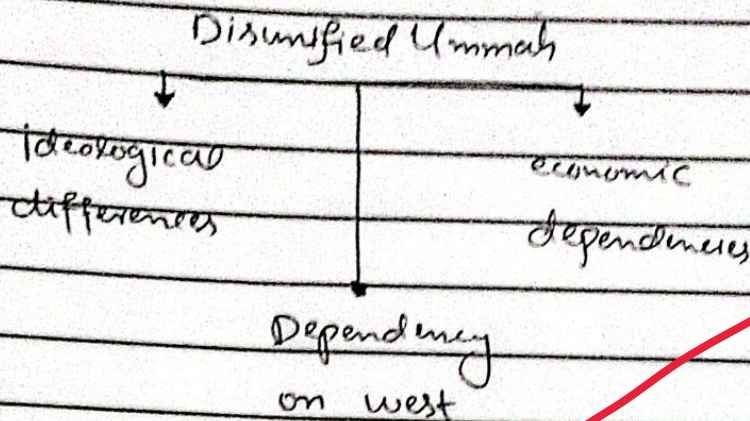 Disunified Ummah
ideological
differences
economic
dependencies
Dependency
on west